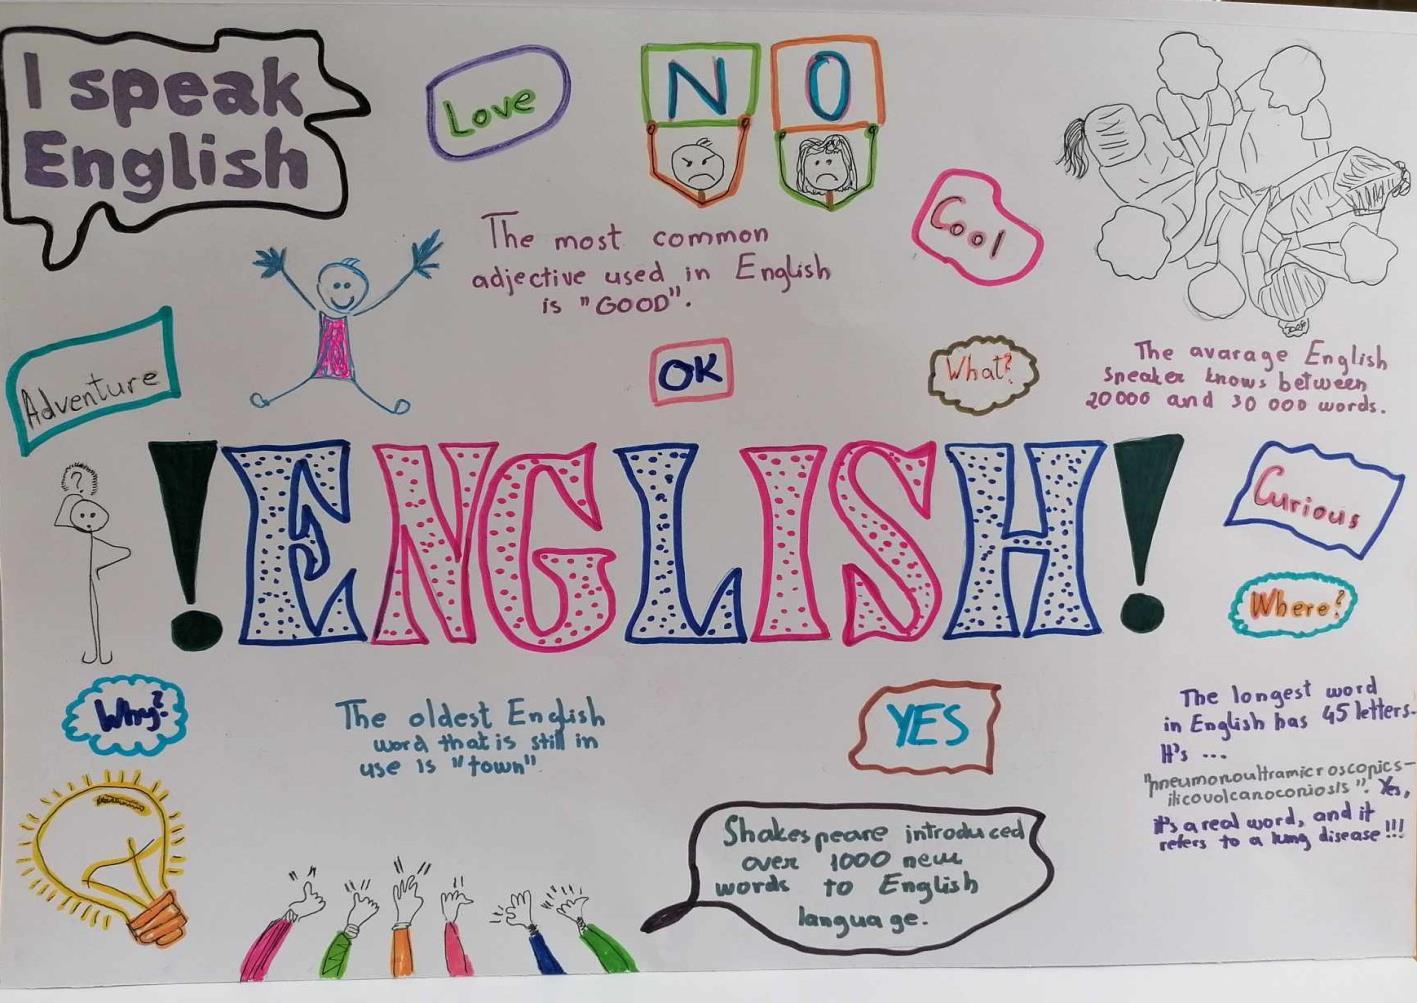 I speak
English
Love
N O
Cool
The most common
adjective used in English
is "GOOD".
Adventure
OK
What?
The avarage English
speaker knows between
20000 and 30 000 words.
?
!ENGLISH!
Curious
Where?
Why?
The oldest English
word that is still in
use is "town".
YES
The longest word
in English has 45 letters.
It's ...
"pneumonoultramicroscopics-
ilicovolcanoconiosis". Yes,
it's a real word, and it
refers to a lung disease!!!
Shakespeare introduced
over 1000 new
words to English
language.